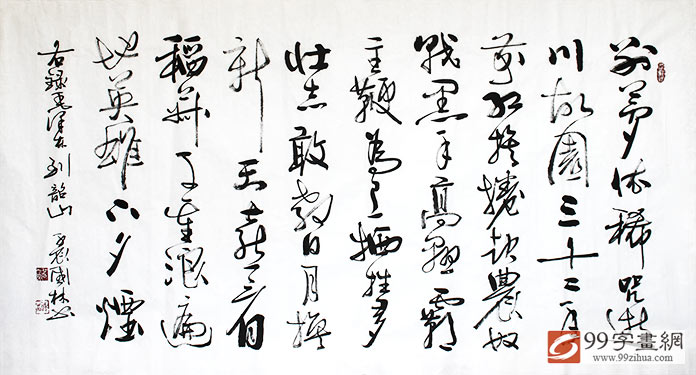 别梦依稀咒逝
川故園三十二年
前红旗捲起農奴
戟黑手高悬霸
主鞭为有牺牲多
壮志敢教日月换
新天喜看
稻菽千重浪遍
地英雄下夕煙
右録毛泽东到韶山
99字畫網
www.99zihua.com